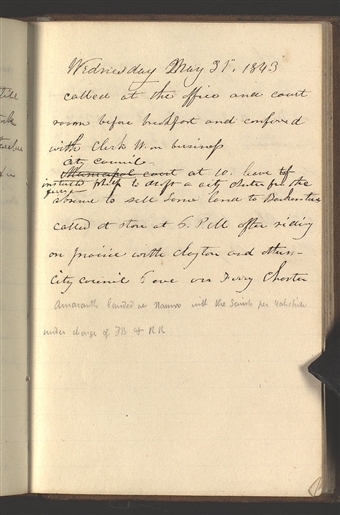 Wednesday May 31. 1843
called at the office and court
room before breakfast and confered
with Clerk W. on business
city council
Municipal court at 10. have
instructed to draft a city charter for the
to sell some land to
called at store at 6. P.M. after riding
on prairie with Clayton and others
City council gave us Ferry Charter
Amaranth landed at Nauvoo with the Saints per Yorkshire
under charge of TB & RR